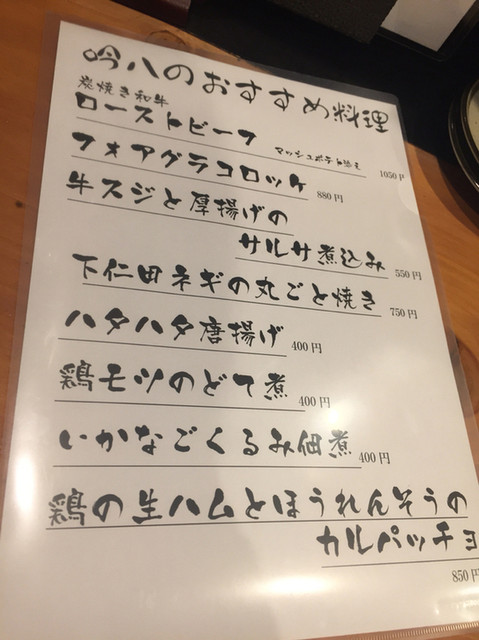 吟八のおすすめ料理
炭焼き和牛
ローストビーフ
マッシュポテト添え 1050円
フォアグラコロッケ 880円
牛スジと厚揚げの
サルサ煮込み 550円
下仁田ネギの丸ごと焼き 750円
ハタハタ唐揚げ 400円
鶏モツのどて煮 400円
いかなごくるみ佃煮 400円
鶏の生ハムとほうれんそうの
カルパッチョ
850円